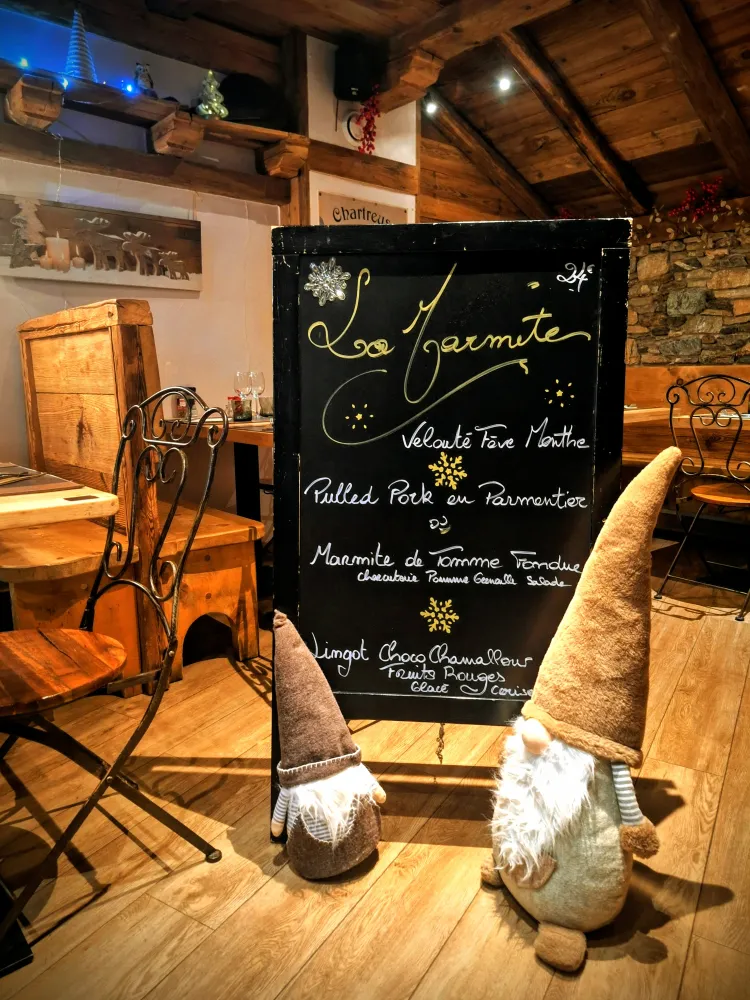 Chartreuse
24€
La Marmite
Velouté Fève Menthe
Pulled Pork en Parmentier
ou
Marmite de Tomme Fondue
Charcuterie Pomme Grenaille Salade
Lingot Choco Chamallow
Fruits Rouges
Glace Cerise